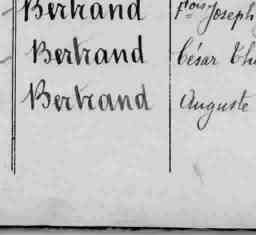 Bertrand fois Joseph
Bertrand César
Bertrand Auguste